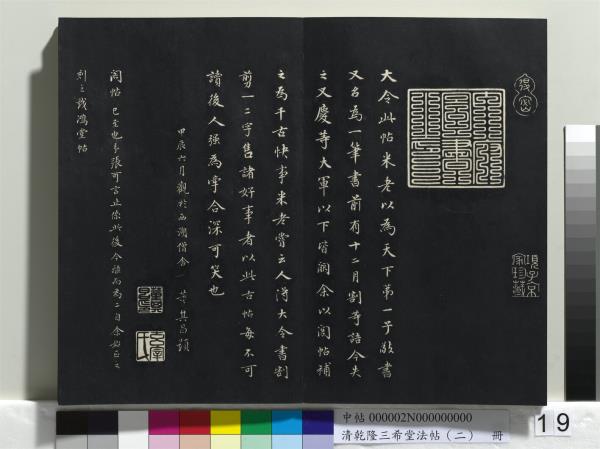 項子京家珍藏
大令此帖米老以為天下第一子敬書
又名為一筆書前有十二月割等語今失
之又慶等大軍以下皆闕余以閣帖補
之為千古快事米老嘗云人得大令書割
剪一二字售諸好事者以此古帖每不可
讀後人強為牽合深可笑也
甲辰六月觀於西湖僧舍 董其昌題
閣帖 已至也多張可言止係此後今離而為二自余始正之
刻之戲鴻堂帖
中帖 000002N000000000
清乾隆三希堂法帖（二） 冊
19